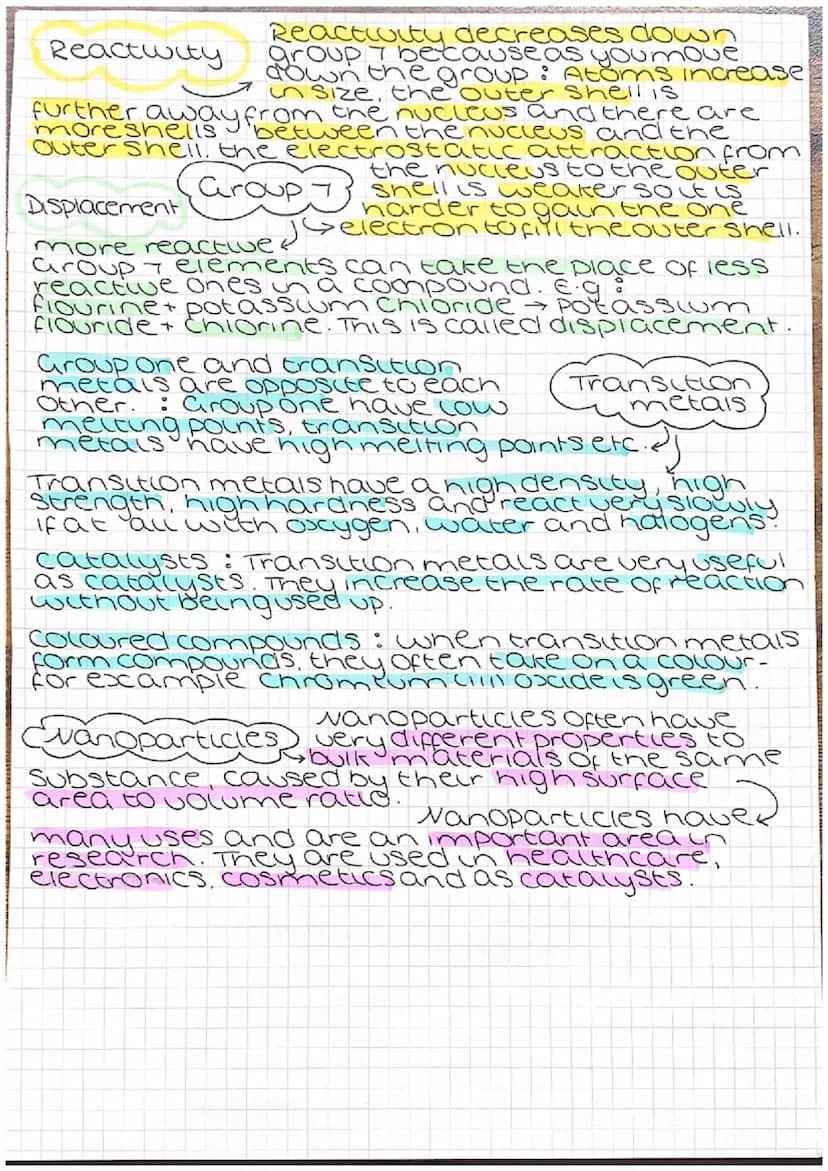 Reactivity
Reactivity decreases down
group 7 because as you move
down the group : Atoms increase
in size, the outer shell is
further away from the nucleus and there are
more shells between the nucleus and the
outer shell. the electrostatic attraction from
the nucleus to the outer
shell is weaker so it is
harder to gain the one
electron to fill the outer shell.
Group 7
Displacement
more reactive
Group 7 elements can take the place of less
reactive ones in a compound. E.g :
flourine + potassium chloride → potassium
flouride + chlorine. This is called displacement.
Group one and transition
metals are opposite to each
other. : Group one have low
melting points, transition
metals have high melting points etc.
Transition
metals
Transition metals have a high density, high
strength, high hardness and react very slowly
if at all with oxygen, water and halogens.
catalysts : Transition metals are very useful
as catalysts. They increase the rate of reaction
without being used up.
coloured compounds : when transition metals
form compounds, they often take on a colour-
for example chromium (III) oxide is green.
Nanoparticles
Nanoparticles often have
very different properties to
bulk materials of the same
substance, caused by their high surface
area to volume ratio.
Nanoparticles have
many uses and are an important area in
research. They are used in healthcare,
electronics, cosmetics and as catalysts.